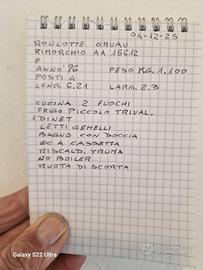 04-12-25
ROULOTTE GRUAU
RIMORCHIO AA 15612
E
ANNO '96 PESO KG. 1.100
POSTI 4
LUNG. 6,21 LARG. 2.3
CUCINA 2 FUOCHI
FRIGO PICCOLO TRIVAL.
1 DINET
LETTI GEMELLI
BAGNO CON DOCCIA
WC A CASSETTA
RISCALD. TRUMA
NO BOILER
RUOTA DI SCORTA
Galaxy S22 Ultra